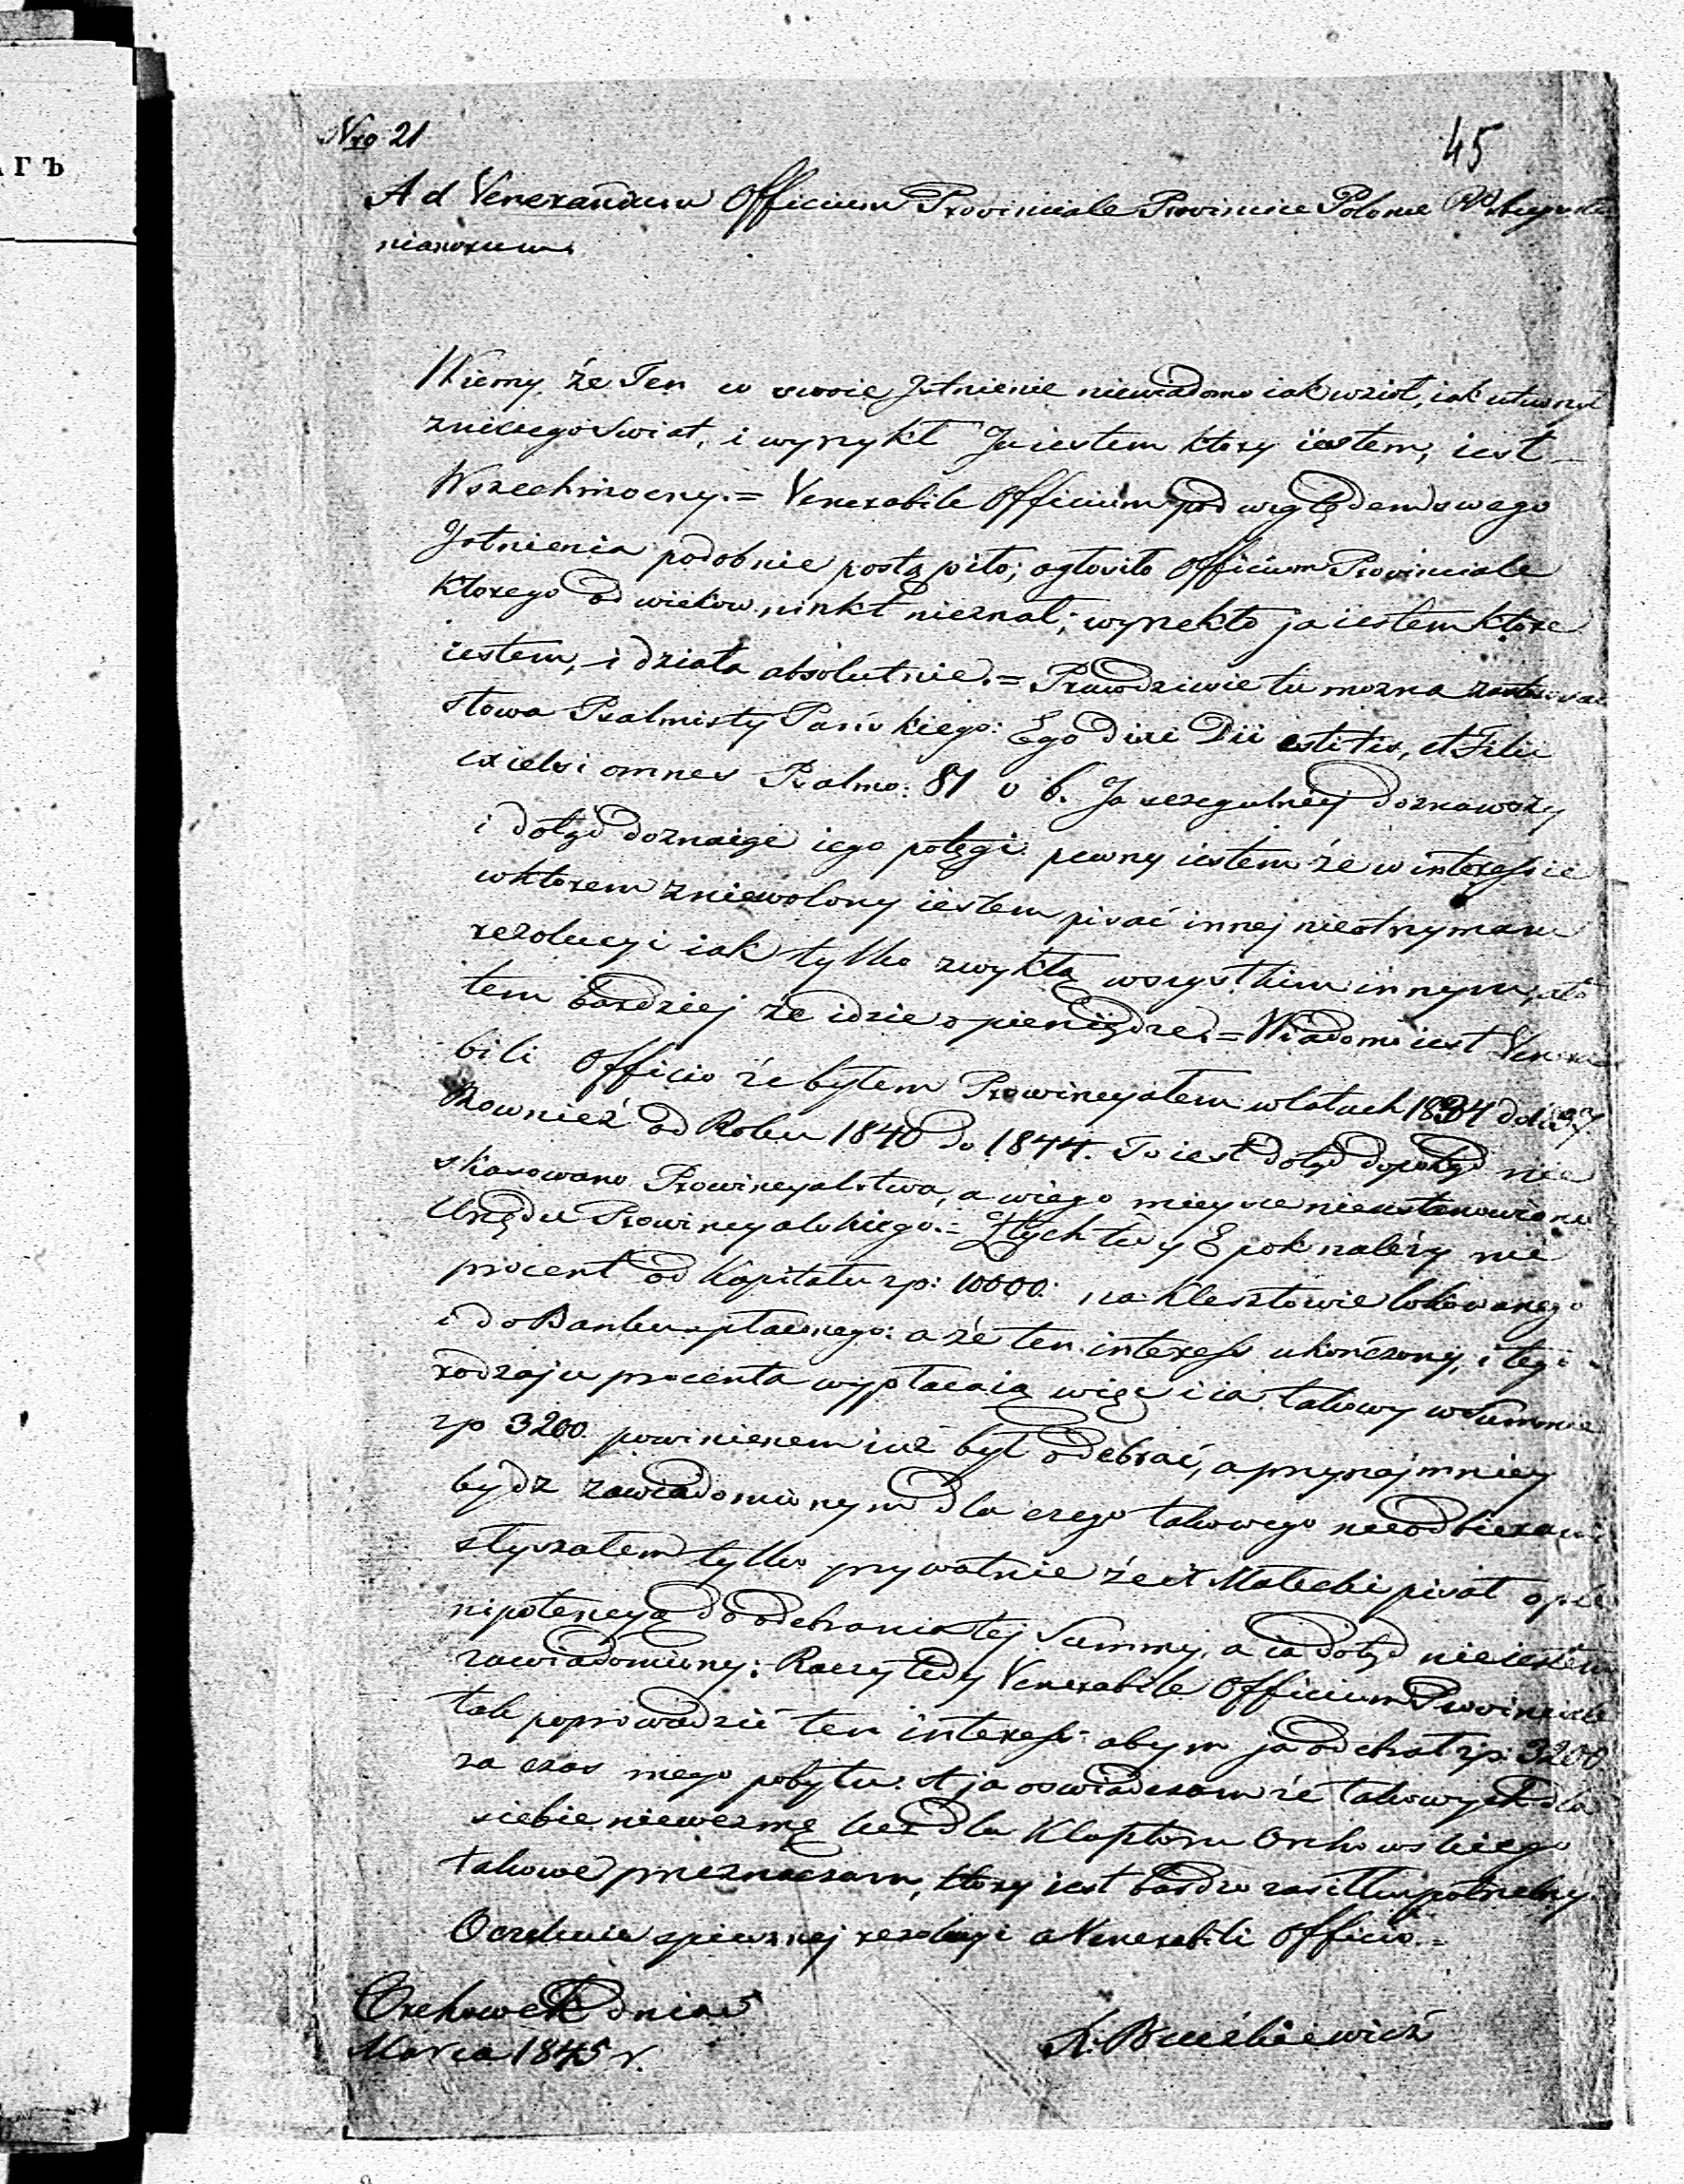 АГЪ
Nro 21
45
Ad Venerandum Officium Provinciale Provinciae Polonae RR Augusti
nianorum
Wiemy że Ten co swoie Jstnienie niewiadomo iak wzioł, iak utworzył
zniczego Swiat, i wyrzykł Ja iestem ktory iestem, iest
Wszechmocny. = Venerabile Officium pod względem swego
Jstnienia podobnie postąpiło; ogłosiło Officium Provinciale
ktorego od wiekow nikt nieznał; wyrzekło ja iestem ktore
iestem, i działa absolutnie. = Prawdziwie tu mozna zastosować
słowa Psalmisty Pańskiego: Ego dixi Dii estis, et Filii
excielsi omnes Psalmo: 81 v 6. Ja szczegulniej doznawszy
i dotąd doznaiąc iego potęgi pewny iestem że w interessie
wktorem zniewolony iestem pisać innej nieotrzymam
rezolucyi iak tylko zwykłą wszystkim innym, ato
tem bardziej że idzie o pieniądze. = Wiadomo iest Venera
bili Officio że byłem Prowincyałem wlatach 1834 do 1837
Rownież od Roku 1840 do 1844. To iest dotąd dopokąd nie
skasowano Prowincyalstwa, a wiego mieysce nieustanowiono
Urzędu Prowincyalskiego. = Ztych tedy Epok należy mie
procent od Kapitału zp: 10000 na Klesztowie lokowanego
i do Banku spłaconego: a że ten interess ukończony, i tego
rodzaju procenta wypłacaią więc i ia takowy w Summie
zp 3200 powinienem iuż był odebrać, a przynajmniey
bydz zawiadomionym dla czego takowego nieodbieram
słyszałem tylko prywatnie że X Małecki pisał o ple
nipotencyą do odebrania tej Summy, a ia dotąd nieiestem
zawiadomiony: Raczy tedy Venerabile Officium Provinciale
tak poprowadzić ten interess abym ja odebrał zp: 3200
za czas mego pobytu. A ja oswiadczam że takowych dla
siebie niewezmę lecz dla Klasztoru Orchowskiego
takowe przeznaczam, ktory iest bardzo zasiłku potrzebny.
Oczekuie spiesznej rezolucyi a Venerabili Officio. =
Orchowek dnia 5
Marca 1845 r.